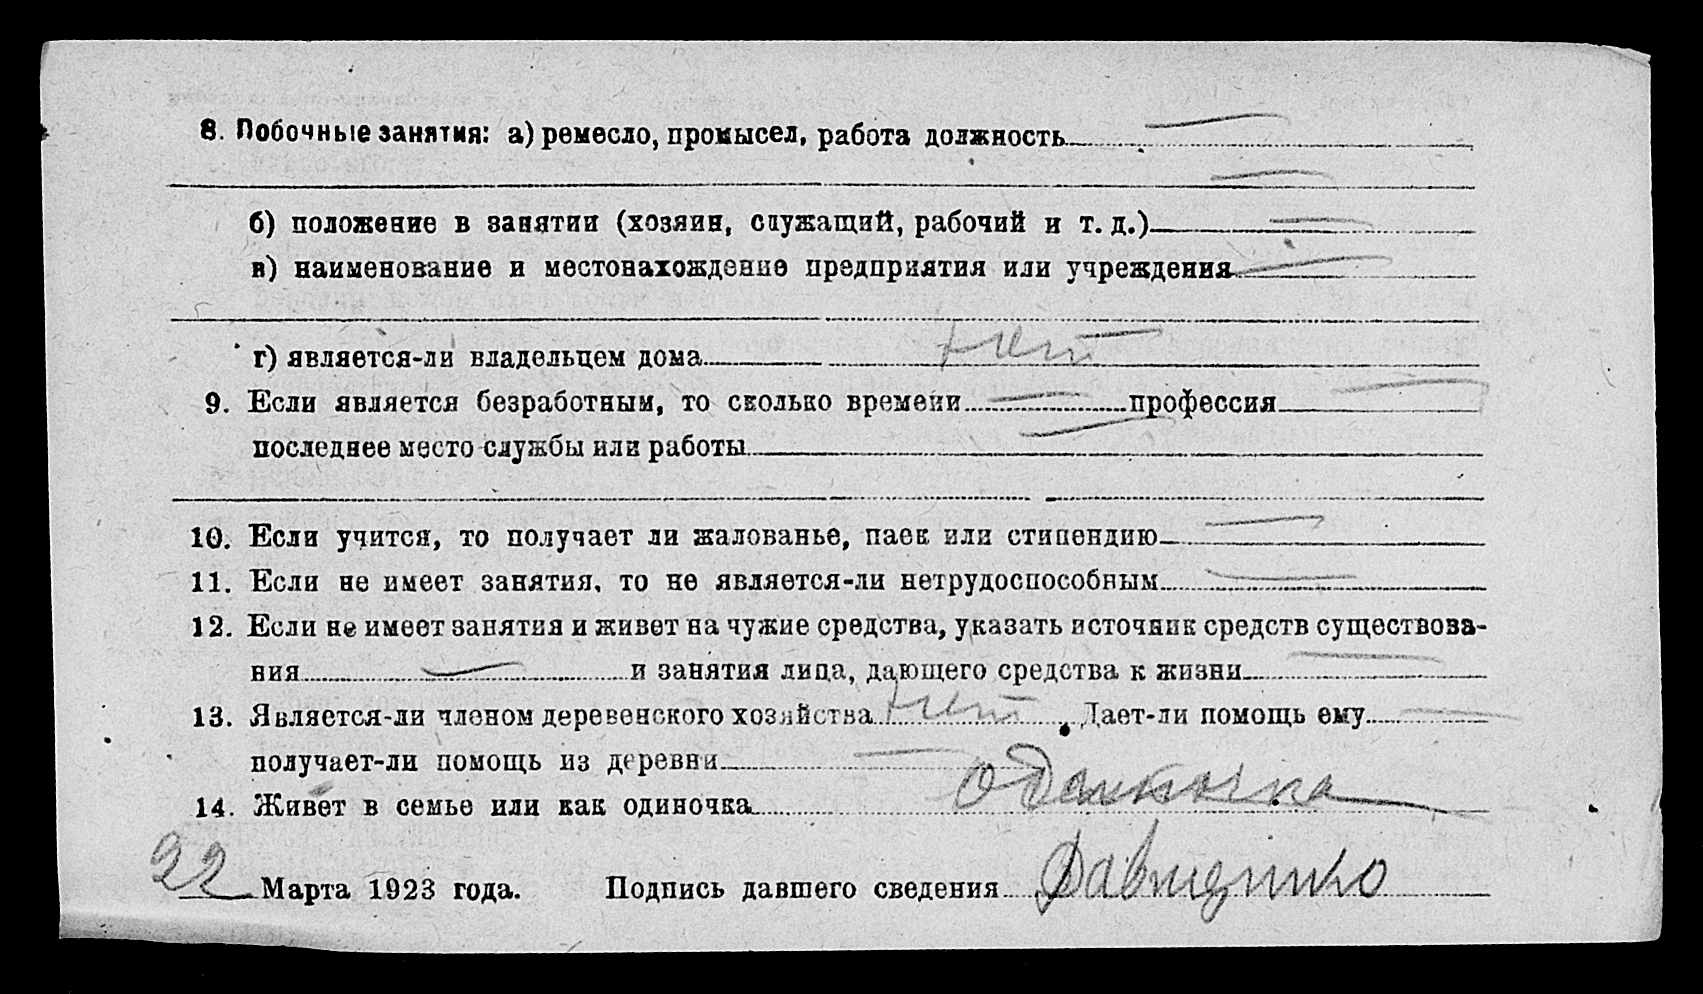 8. Побочные занятия: а) ремесло, промысел, работа должность —
—
б) положение в занятии (хозяин, служащий, рабочий и т. д.) —
в) наименование и местонахождение предприятия или учреждения —
г) является-ли владельцем дома нет —
9. Если является безработным, то сколько времени — профессия —
последнее место службы или работы —
10. Если учится, то получает ли жалованье, паек или стипендию —
11. Если не имеет занятия, то не является-ли нетрудоспособным —
12. Если не имеет занятия и живет на чужие средства, указать источник средств существова-
ния — и занятия лица, дающего средства к жизни —
13. Является-ли членом деревенского хозяйства нет. Дает-ли помощь ему —
получает-ли помощь из деревни —
14. Живет в семье или как одиночка одиночка
22 Марта 1923 года. Подпись давшего сведения Давиденко